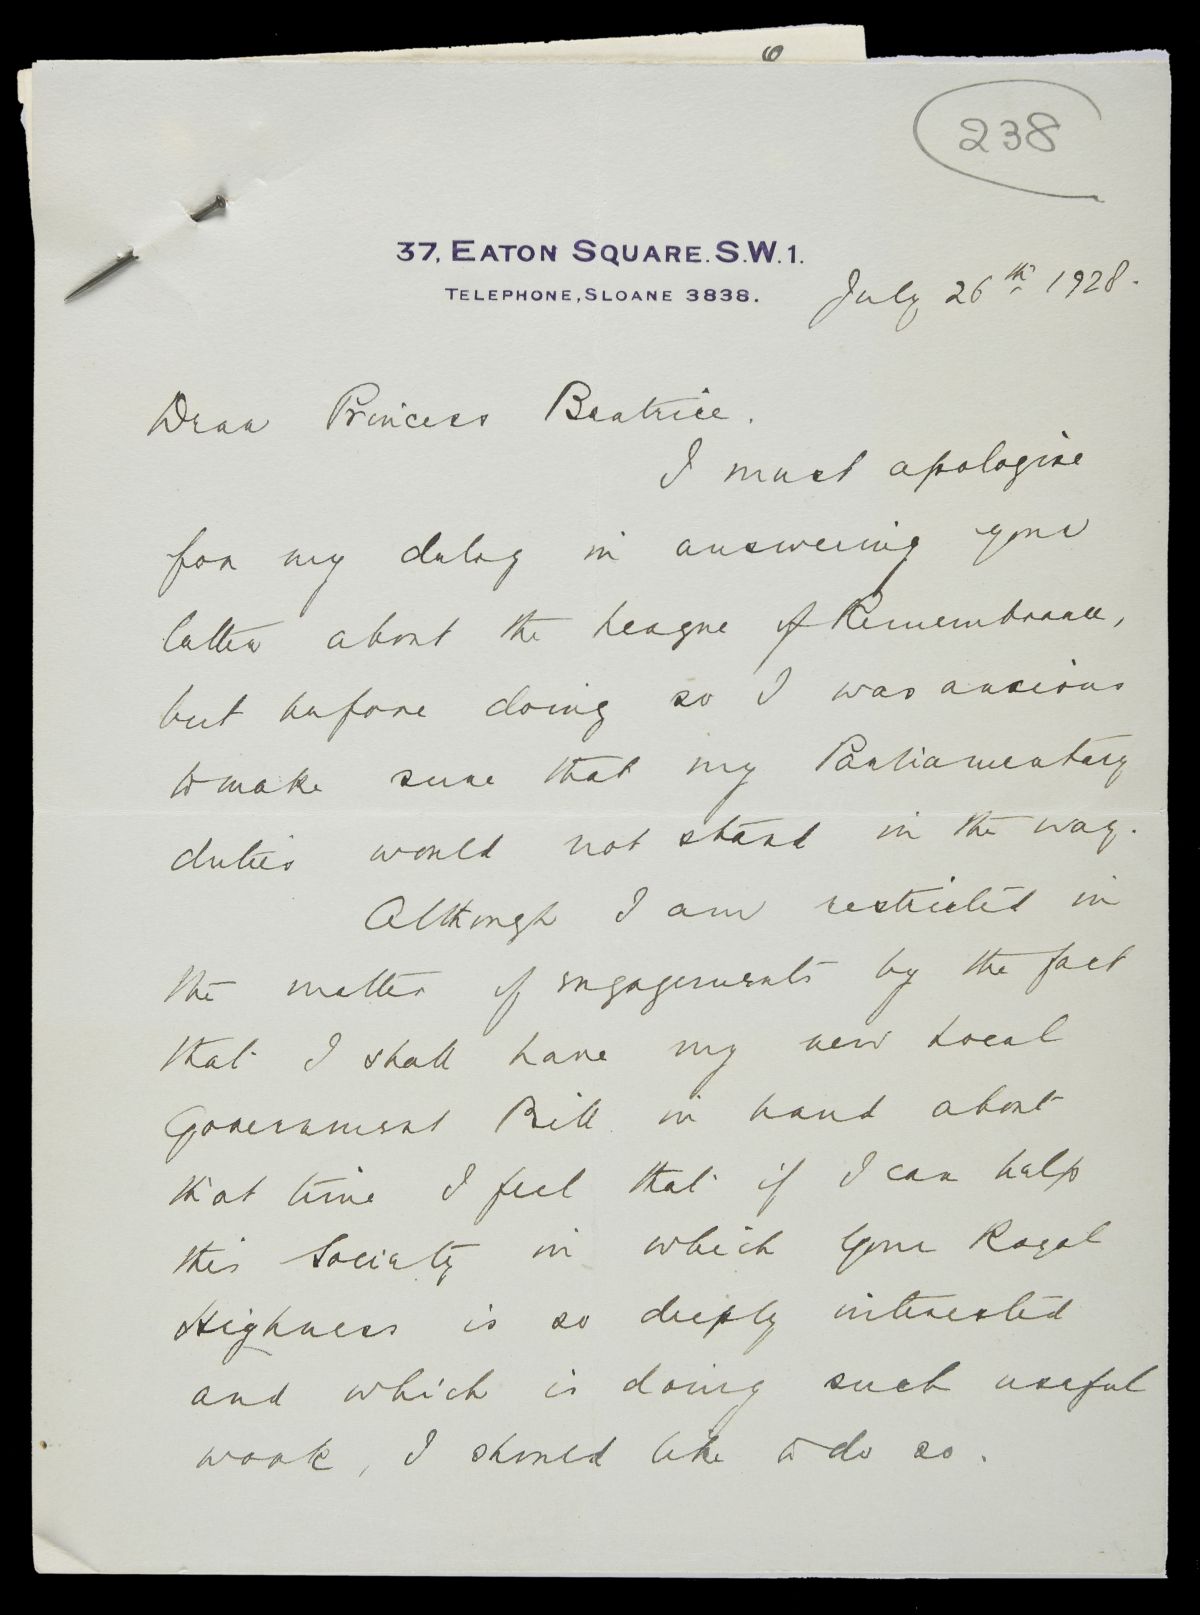 6
238
37, EATON SQUARE. S.W.1.
TELEPHONE, SLOANE 3838.
July 26th 1928.
Dear Princess Beatrice.
I must apologise
for my delay in answering your
letter about the League of Remembrance,
but before doing so I was anxious
to make sure that my Parliamentary
duties would not stand in the way.
Although I am restricted in
the matter of engagements by the fact
that I shall have my new Local
Government Bill in hand about
that time I feel that if I can help
this Society in which Your Royal
Highness is so deeply interested
and which is doing such useful
work, I should like to do so.